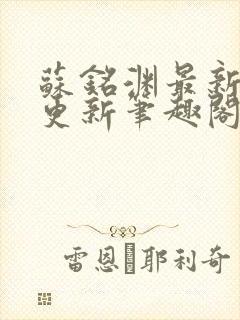 蘇銘淵最新
更新筆趣閣
雷恩·耶利奇